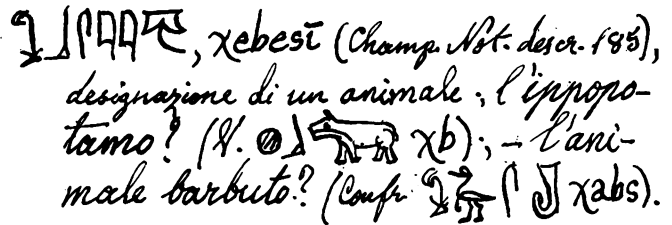 𓆼𓃀𓋴𓇋𓇋𓄛, χebesī (Champ. Not. descr. 185),
designazione di un animale; l'ippopo-
tamo? (V. 𓐍𓃀𓃯 χb); – l'ani-
male barbuto? (Confr. χabs).